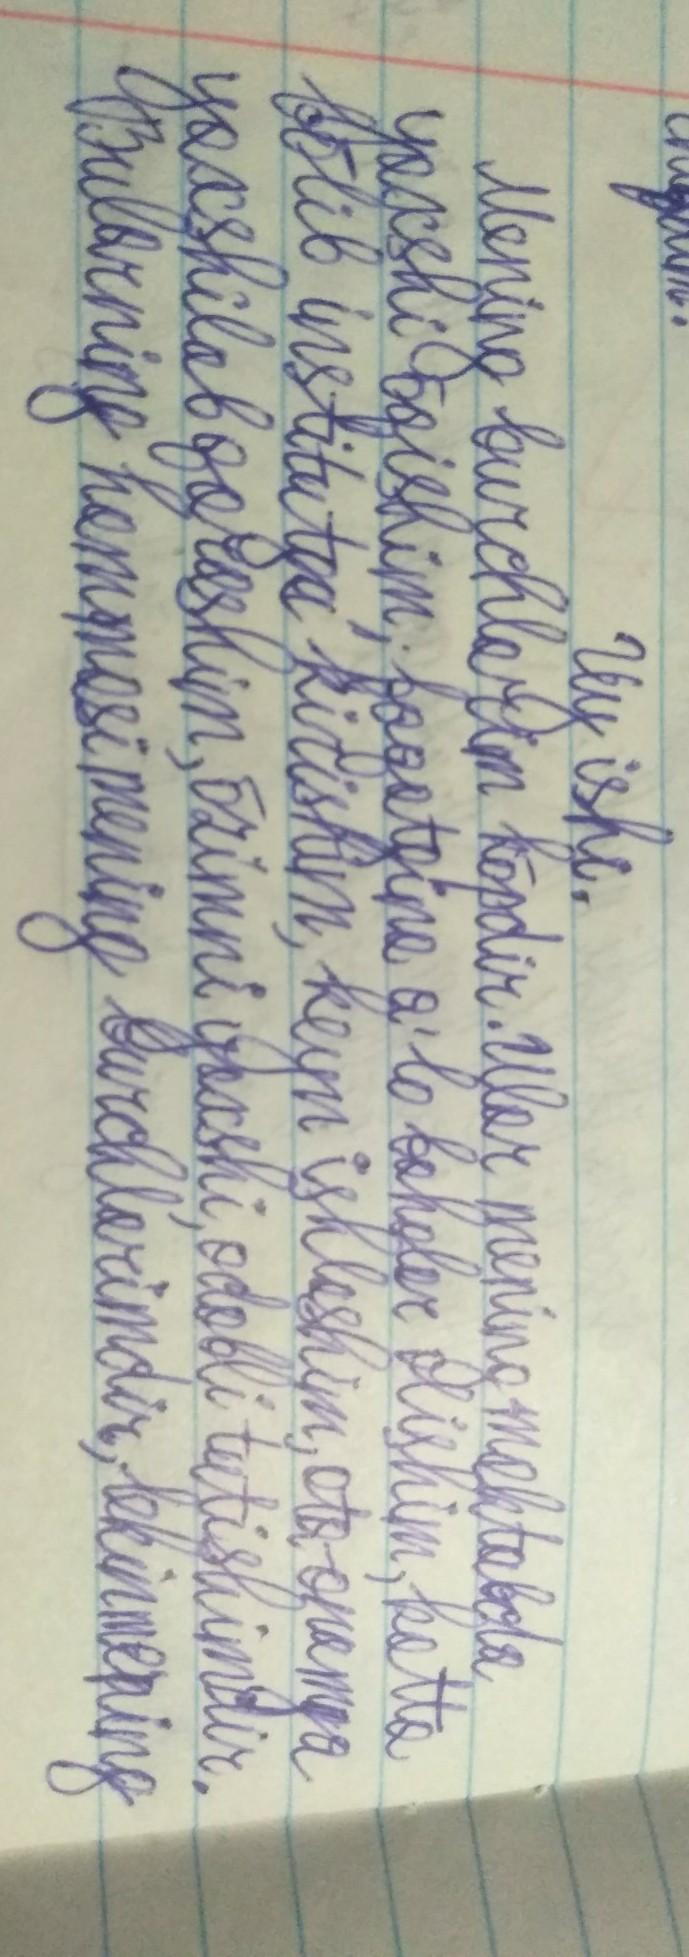 Uy ishi.
Mening burchlarim kōpdir. Ular mening maktabda
yaxshi ōqishim, faqatgina a'lo baholar olishim, katta
bōlib institutga kirishim, keyn ishlashim, ota, onamga
yaxshilab qarashim, ōzimni yaxshi, odobli tutishimdir.
Bularning hammasi mening burchlarimdir, lekin mening